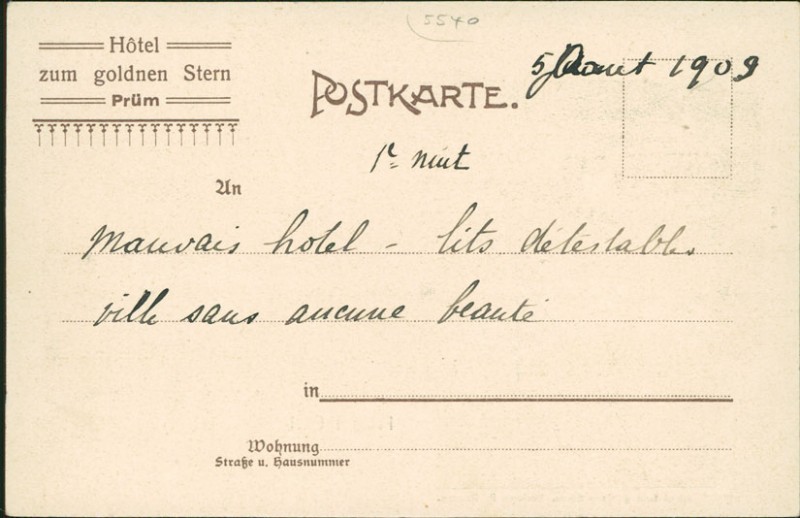 5540
Hôtel
zum goldnen Stern
Prüm
POSTKARTE.
5 Aout 1909
1e nuit
An
Mauvais hotel – lits détestables
ville sans aucune beauté
in
Wohnung
Straße u. Hausnummer